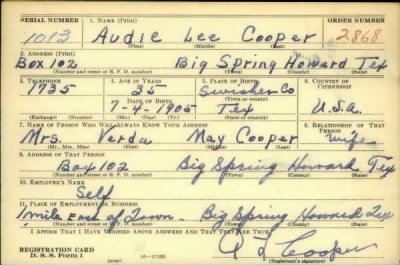 SERIAL NUMBER 1. NAME (Print) ORDER NUMBER
1013 Audie Lee Cooper 2868
(First) (Middle) (Last)
2. ADDRESS (Print)
Box 102 Big Spring Howard Tex
(Number and street or R. F. D. number) (Town) (County) (State)
3. TELEPHONE 4. AGE IN YEARS 5. PLACE OF BIRTH 6. COUNTRY OF CITIZENSHIP
1735 35 Swisher Co
DATE OF BIRTH (Town or county)
7-4-1905 Tex U.S.A.
(Exchange) (Number) (Mo.) (Day) (Yr.) (State or country)
7. NAME OF PERSON WHO WILL ALWAYS KNOW YOUR ADDRESS 8. RELATIONSHIP OF THAT PERSON
Mrs. Verda May Cooper wife
(Mr., Mrs., Miss) (First) (Middle) (Last)
9. ADDRESS OF THAT PERSON
Box 102 Big Spring Howard Tex
(Number and street or R. F. D. number) (Town) (County) (State)
10. EMPLOYER'S NAME
Self
11. PLACE OF EMPLOYMENT OR BUSINESS
1 mile East of Town - Big Spring Howard Tex
(Number and street or R. F. D. number) (Town) (County) (State)
I AFFIRM THAT I HAVE VERIFIED ABOVE ANSWERS AND THAT THEY ARE TRUE.
REGISTRATION CARD
D. S. S. Form 1 A L Cooper
(Registrant's signature)